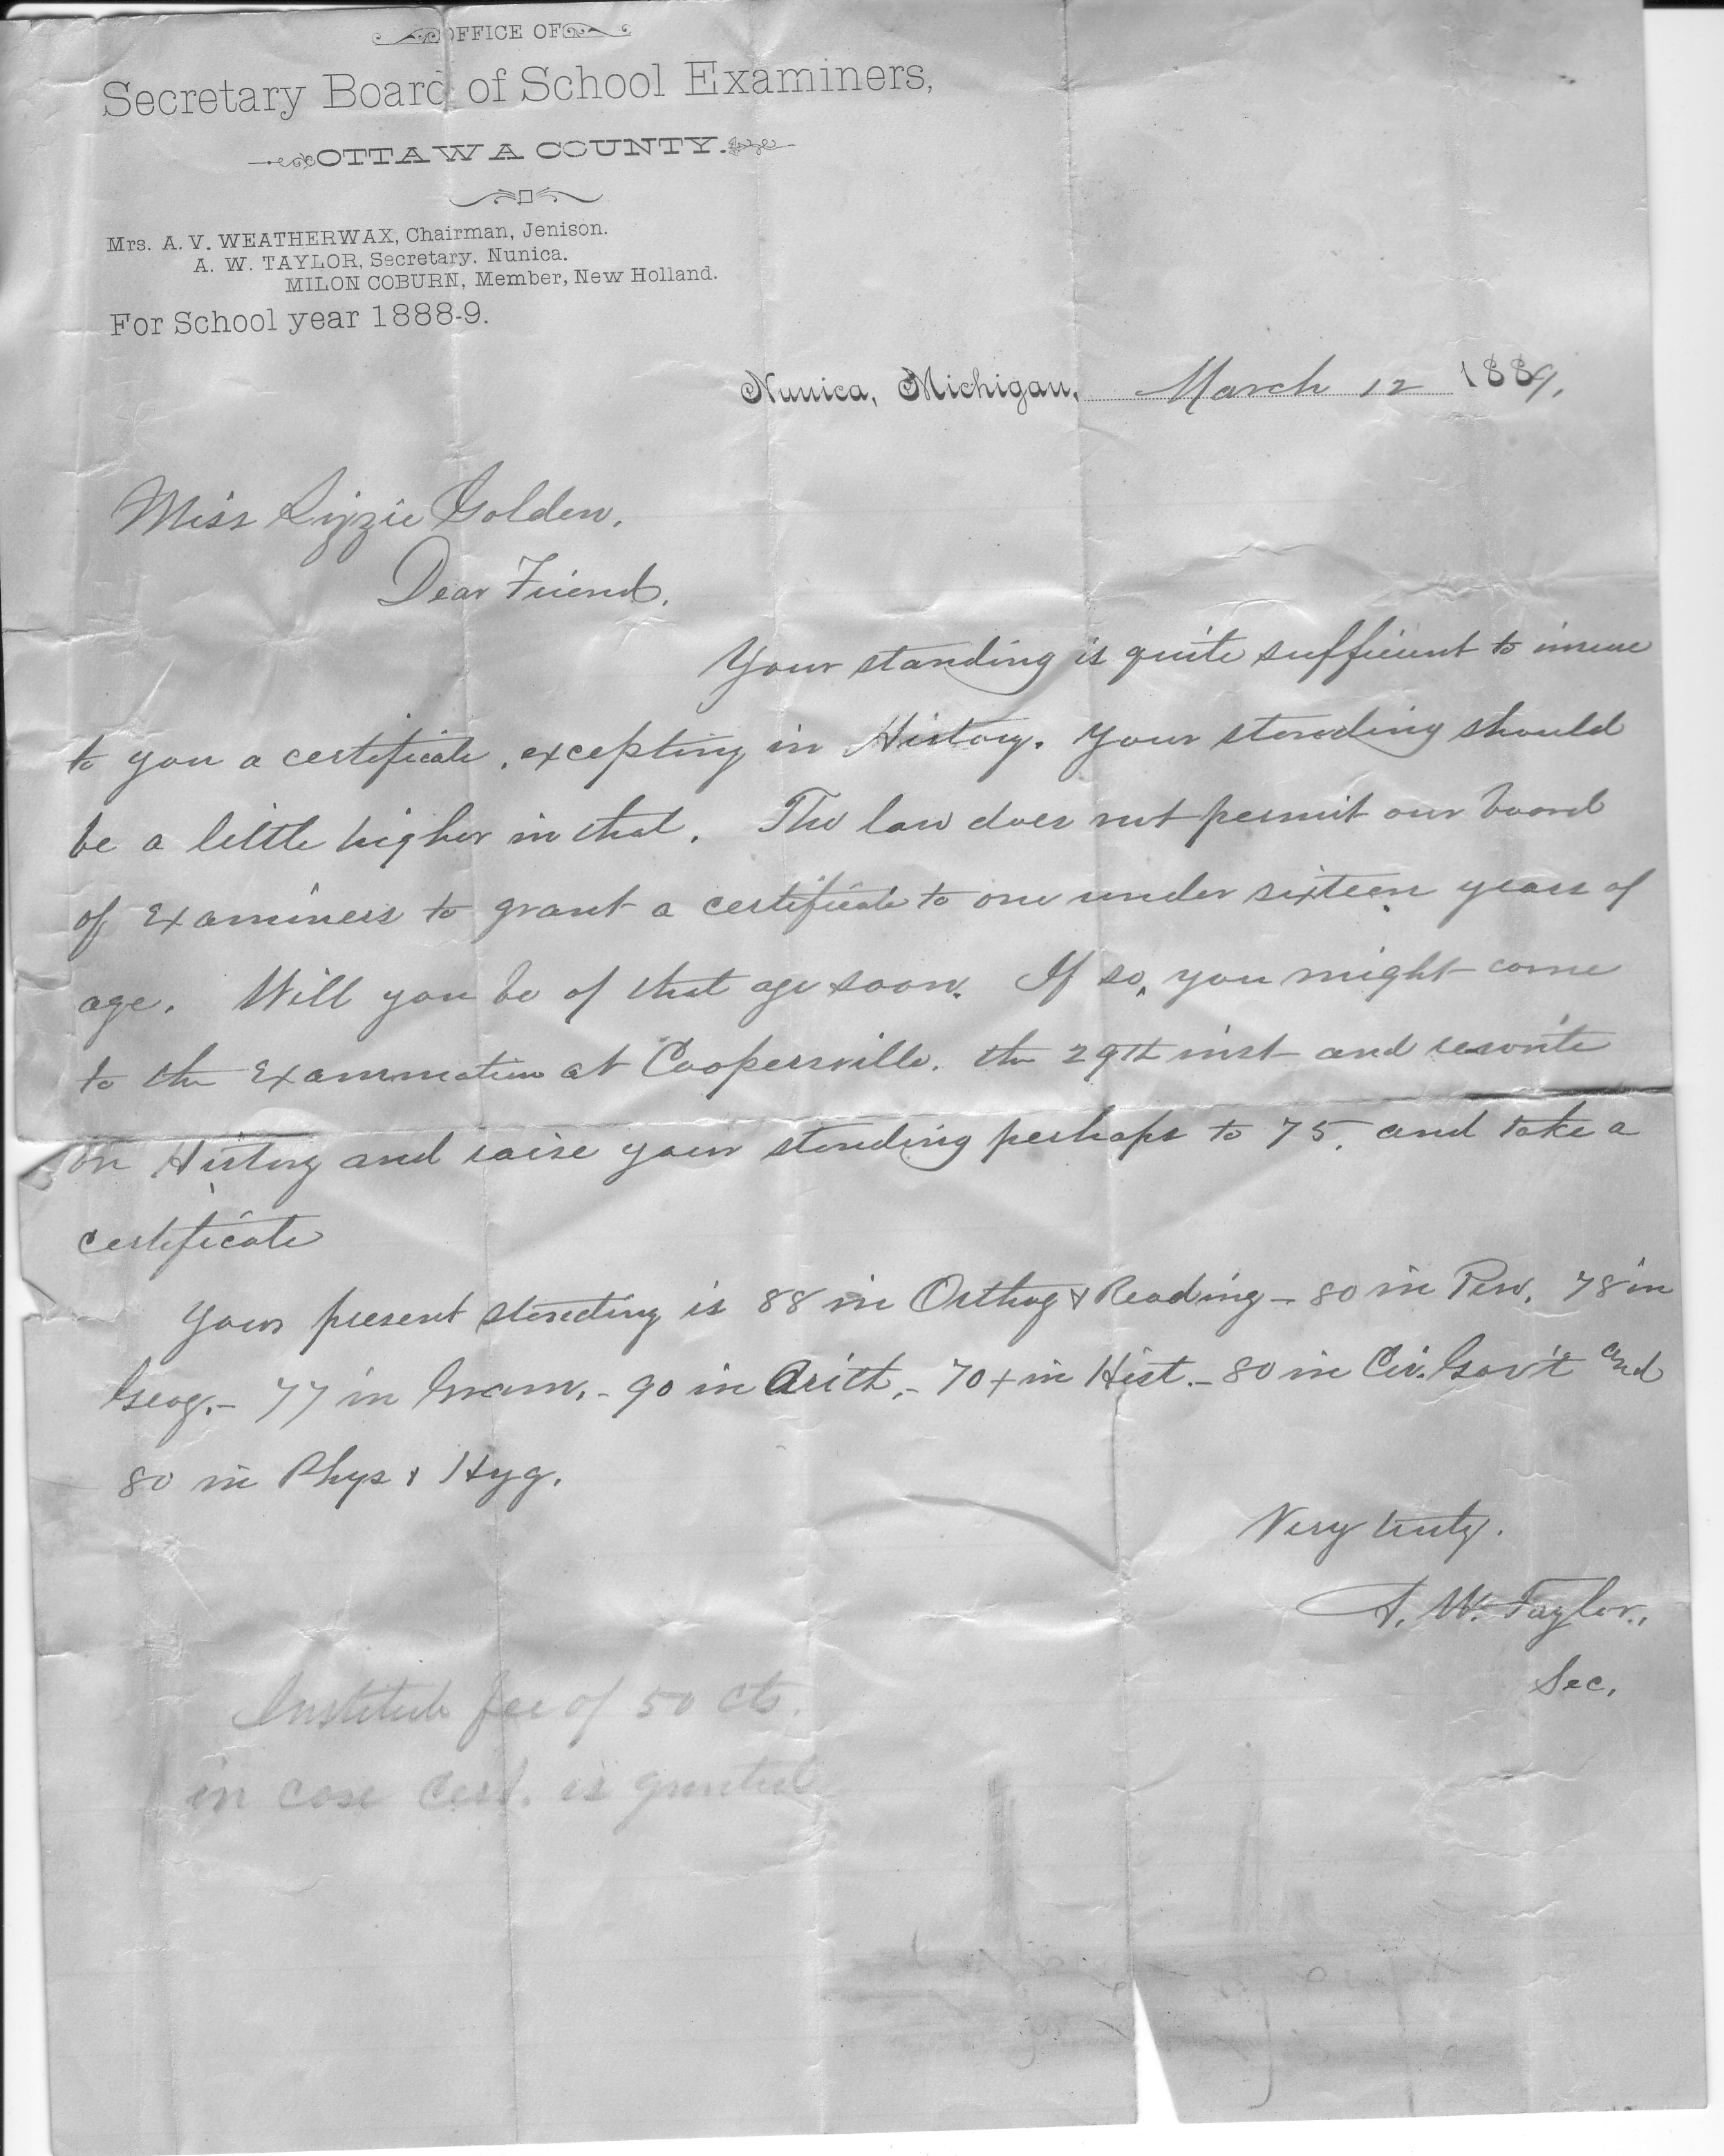 OFFICE OF
Secretary Board of School Examiners,
OTTAWA COUNTY.
Mrs. A. V. WEATHERWAX, Chairman, Jenison.
A. W. TAYLOR, Secretary. Nunica.
MILON COBURN, Member, New Holland.
For School year 1888-9.
Nunica, Michigan, March 12 1889.
Miss Lizzie Golden.
Dear Friend.
Your standing is quite sufficient to insure
to you a certificate, excepting in History. Your standing should
be a little higher in that. The law does not permit our board
of Examiners to grant a certificate to one under sixteen years of
age. Will you be of that age soon. If so, you might come
to the Examination at Coopersville. the 29th inst and rewrite
on History and raise your standing perhaps to 75, and take a
certificate
Your present standing is 88 in Orthog & Reading - 80 in Pen. 78 in
Geog. - 77 in Gram. - 90 in Arith. - 70+ in Hist. - 80 in Civ. Gov't and
80 in Phys & Hyg.
Very truly.
A. W. Taylor.,
Sec.
Institute fee of 50 cts.
in case cert. is granted